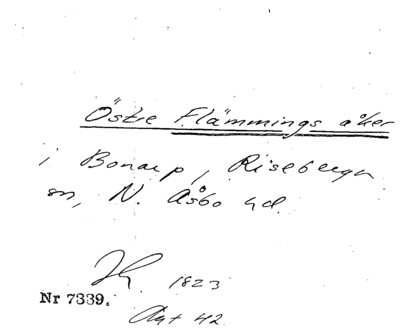 Östre Flämmings åker
i Bonarp, Riseberga
sn, N. Åsbo hd.
1823
Nr 7339.
Akt 42